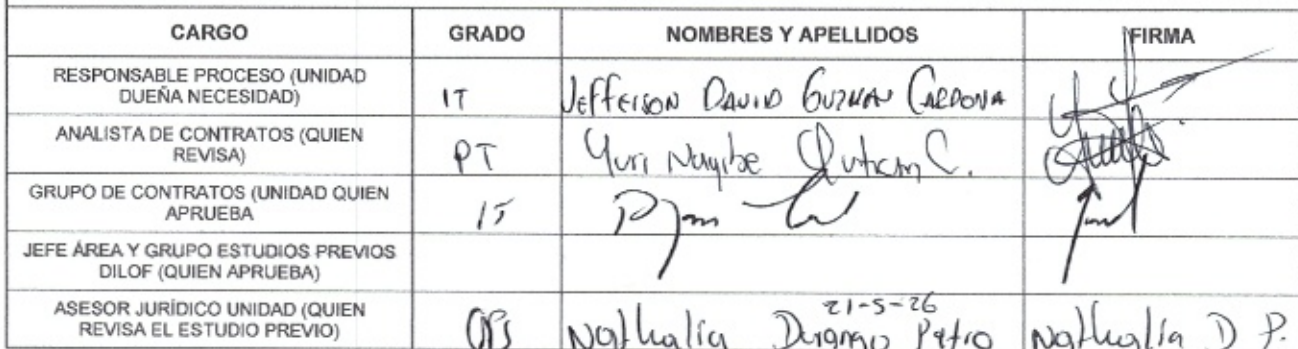 CARGO GRADO NOMBRES Y APELLIDOS FIRMA
RESPONSABLE PROCESO (UNIDAD
DUEÑA NECESIDAD) IT Jefferson David Guzman Cardona
ANALISTA DE CONTRATOS (QUIEN
REVISA) PT Yuri Nayibe C.
GRUPO DE CONTRATOS (UNIDAD QUIEN
APRUEBA IT
JEFE ÁREA Y GRUPO ESTUDIOS PREVIOS
DILOF (QUIEN APRUEBA)
21-5-26
ASESOR JURÍDICO UNIDAD (QUIEN
REVISA EL ESTUDIO PREVIO) Nathalia Durango Petro Nathalia D P.